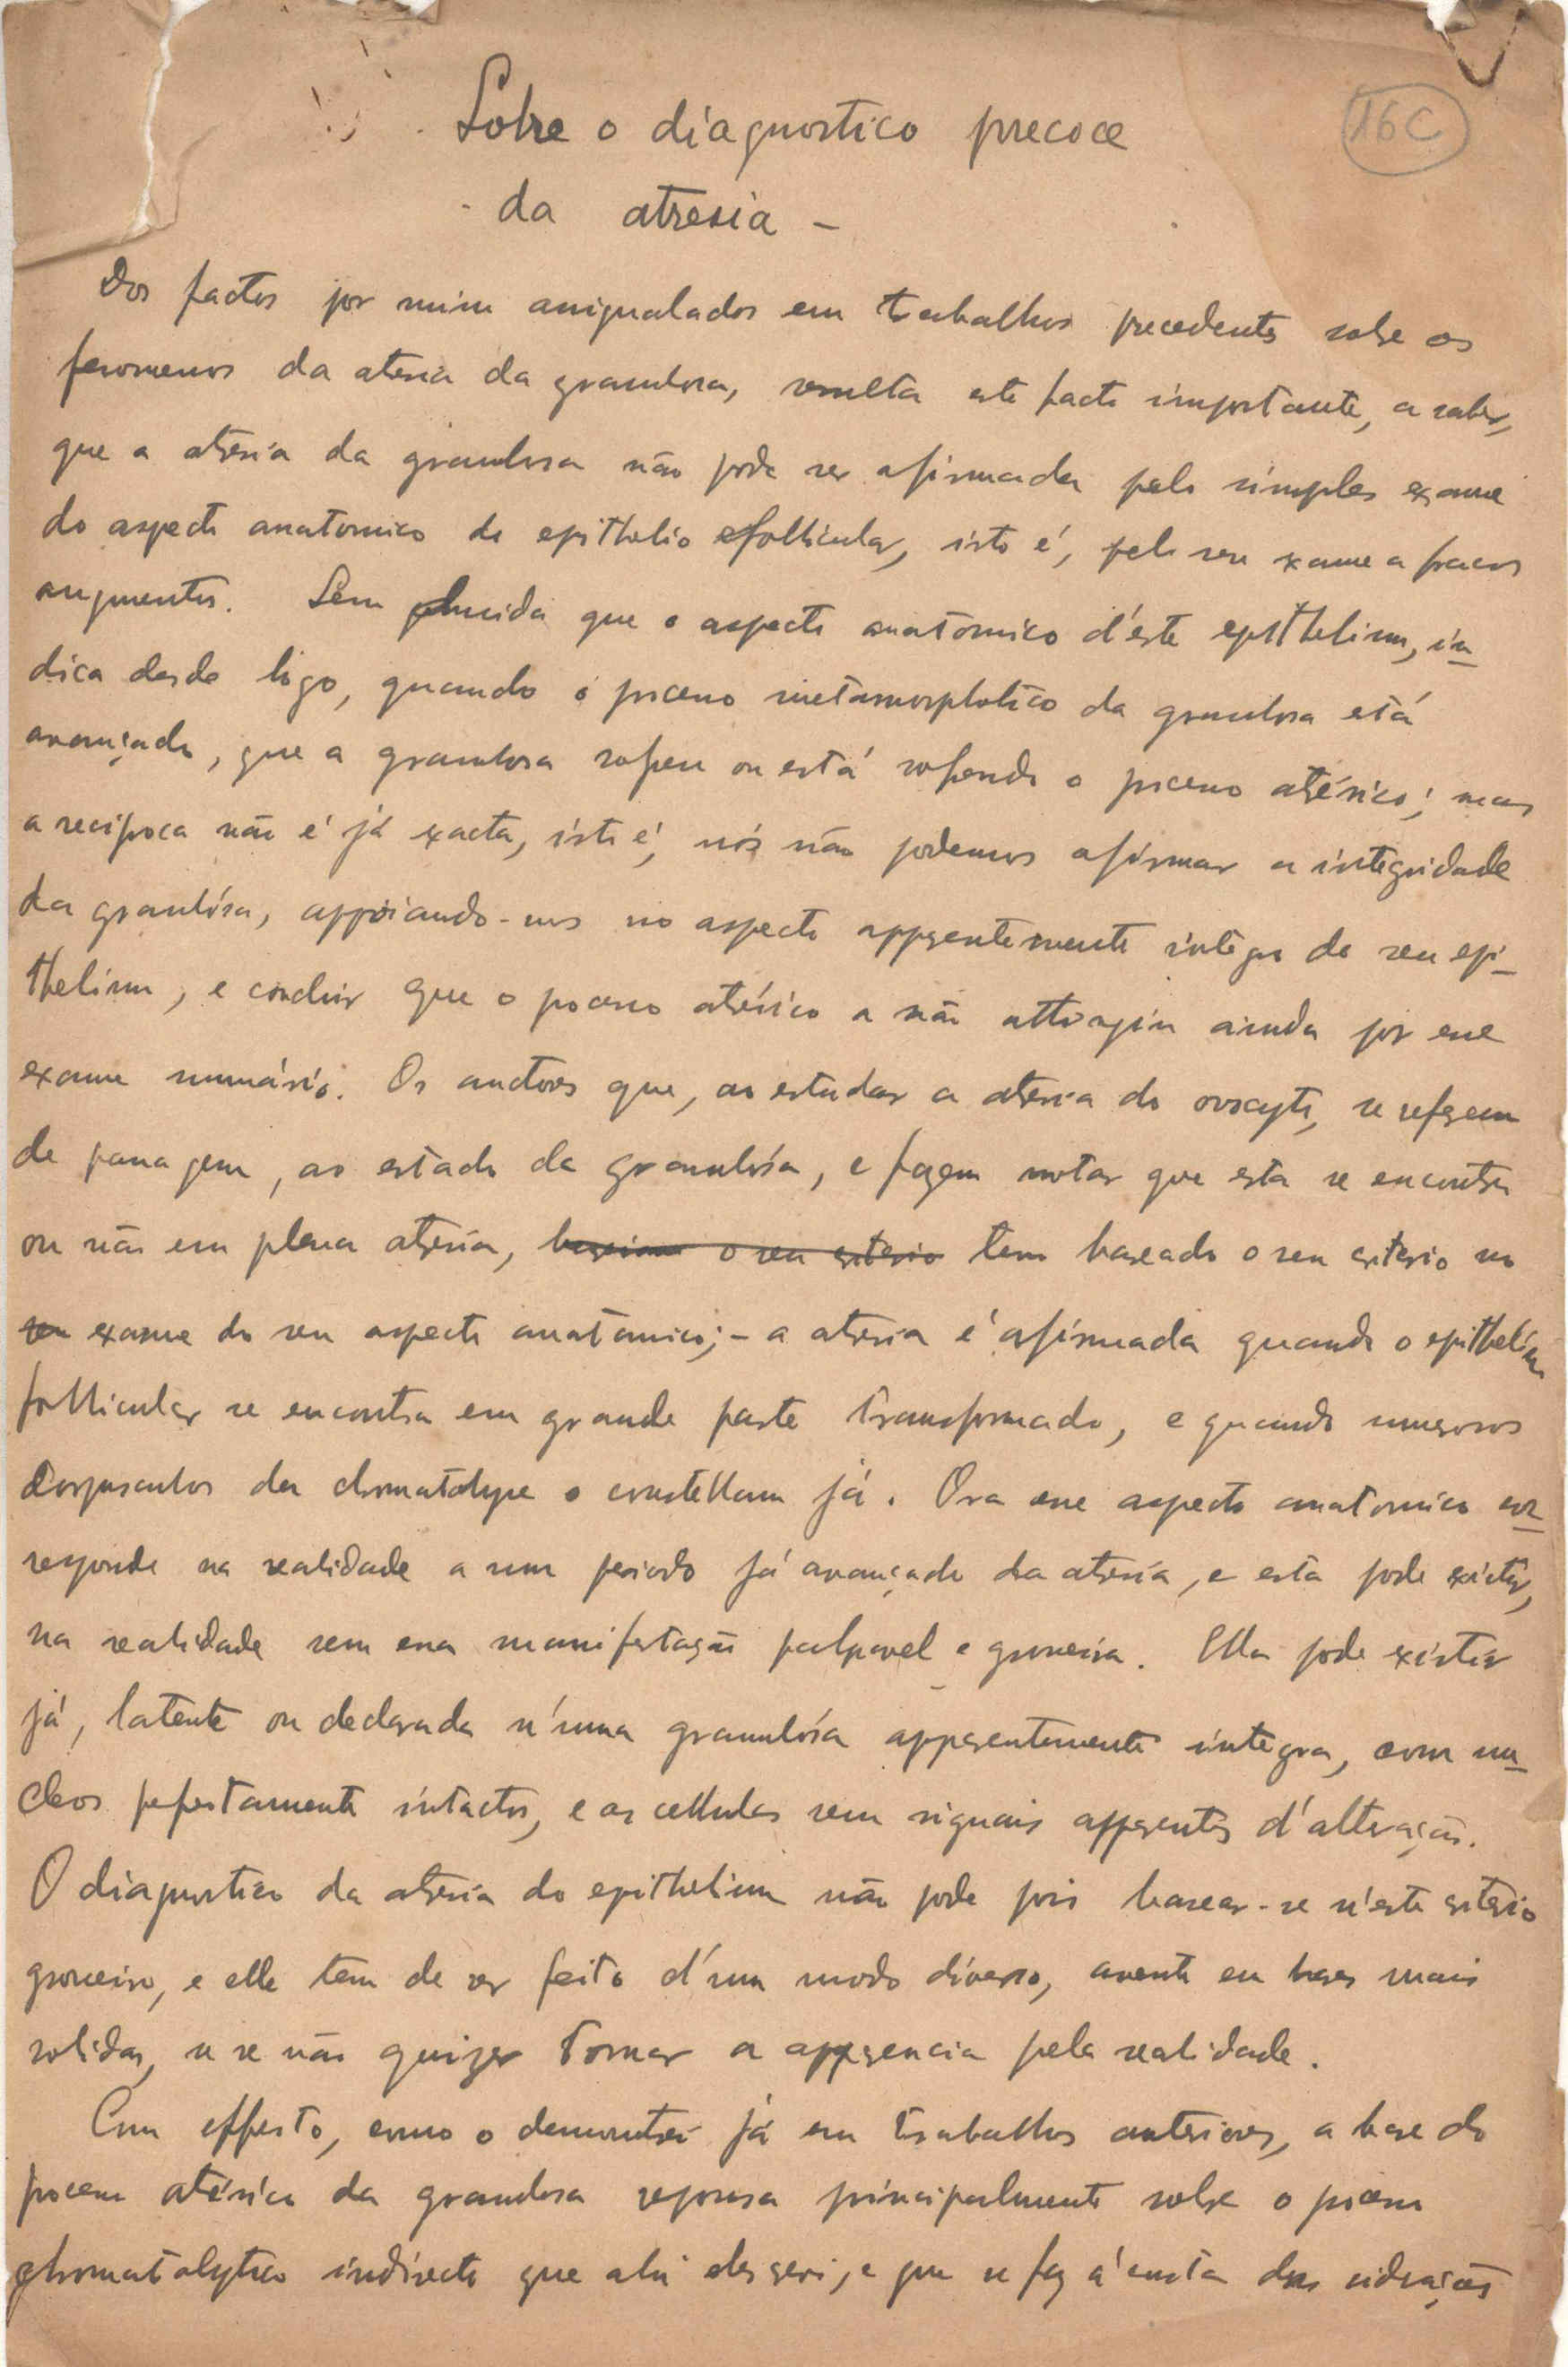 Sobre o diagnostico precoce
16C
- da atresia -
Dos factos por mim assignalados em trabalhos precedentes sobre os
fenomenos da atresia da granulosa, resulta este facto importante, a saber,
que a atresia da granulosa não pode ser afirmada pelo simples exame
do aspecto anatomico do epithelio follicular, isto é, pelo seu exame a fracos
augmentos. Sem duvida que o aspecto anatómico d'este epithelium, in-
dica desde lógo, quando o processo metamorphotico da granulosa está
avançado, que a granulosa sofreu ou está sofrendo o processo atrésico; mas
a reciproca não é já exacta, isto é, nós não podemos afirmar a integridade
da granulósa, appoiando-nos no aspecto apparentemente integro do seu epi-
thelium, e concluir que o processo atrésico a não attingiu ainda por esse
exame summário. Os auctores que, ao estudar a atresia do ovocyto, se referem
de passagem, ao estado da granulósa, e fazem notar que esta se encontra
ou não em plena atresia, o seu criterio tem baseado o seu criterio no
seu exame do seu aspecto anatómico; - a atresia é afirmada quando o epithelium
follicular se encontra em grande parte transformado, e quando numerosos
corpusculos da chromatolyse o constellam já. Ora esse aspecto anatomico cor-
responde na realidade a um periodo já avançado da atresia, e esta pode existir,
na realidade sem essa manifestação palpavel e grosseira. Ella pode existir
já, latente ou declarada n'uma granulósa apparentemente integra, com nu-
cleos perfeitamente intactos, e as cellulas sem signais apparentes d'alteração.
O diagnostico da atresia do epithelium não pode pois basear-se n'este criterio
grosseiro, e elle tem de ser feito d'um modo diverso, assente em bases mais
solidas, se se não quizer tomar a apparencia pela realidade.
Com effeito, como o demonstrei já em trabalhos anteriores, a base do
processo atrésico da granulosa repousa principalmente sobre o processo
chromatolytico indirecto que ahi descrevi, e que se faz á custa das